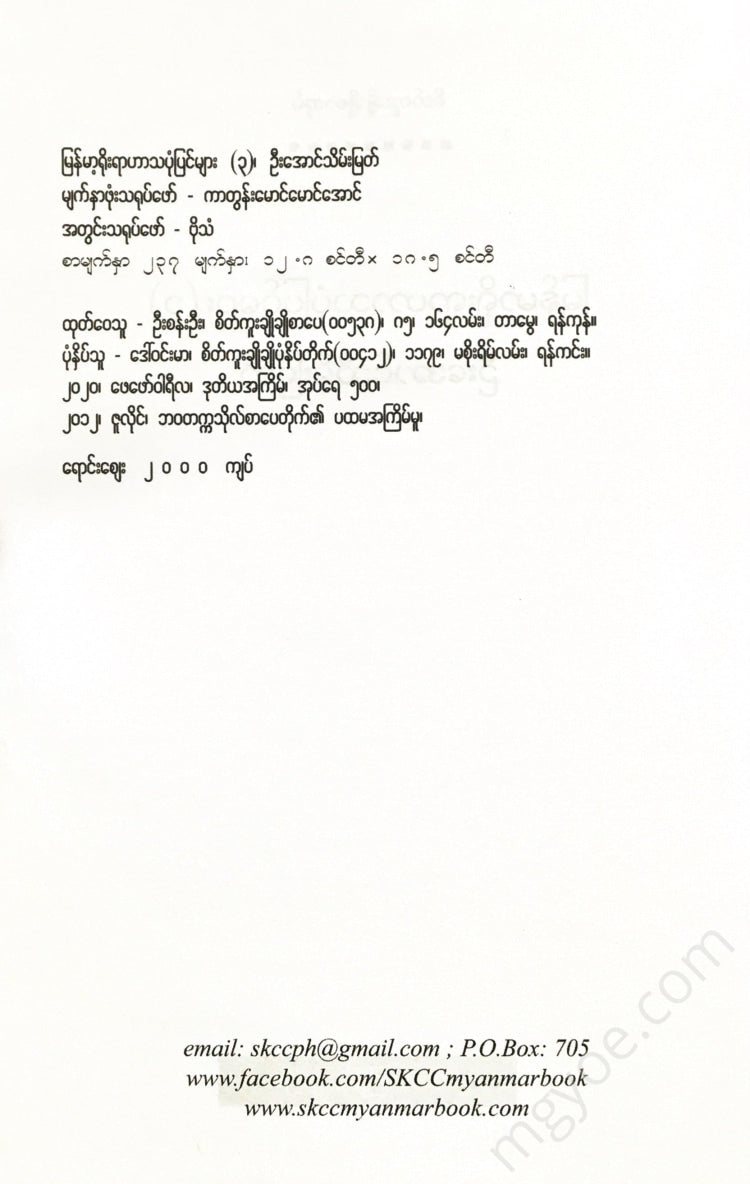 မြန်မာ့ရိုးရာဟာသပုံပြင်များ (၃)၊ ဦးအောင်သိမ်းမြတ်
မျက်နှာဖုံးသရုပ်ဖော် - ကာတွန်းမောင်မောင်အောင်
အတွင်းသရုပ်ဖော် - ဗိုသံ
စာမျက်နှာ ၂၃၇ မျက်နှာ၊ ၁၂.ဂ စင်တီ× ၁ဂ.၅ စင်တီ
ထုတ်ဝေသူ - ဦးစန်းဦး၊ စိတ်ကူးချိုချိုစာပေ(၀၀၅၃ဂ)၊ ဂ၅၊ ၁၆၄လမ်း၊ တာမွေ၊ ရန်ကုန်။
ပုံနှိပ်သူ - ဒေါ်ဝင်းမာ၊ စိတ်ကူးချိုချိုပုံနှိပ်တိုက်(၀၀၄၁၂)၊ ၁၁၇၉၊ မစိုးရိမ်လမ်း၊ ရန်ကင်း။
၂၀၂၀၊ ဖေဖော်ဝါရီလ၊ ဒုတိယအကြိမ်၊ အုပ်ရေ ၅၀၀၊
၂၀၁၂၊ ဇူလိုင်၊ ဘ၀တက္ကသိုလ်စာပေတိုက်၏ ပထမအကြိမ်မူ၊
ရောင်းဈေး ၂ ၀ ၀ ၀ ကျပ်
email: skccph@gmail.com ; P.O.Box: 705
www.facebook.com/SKCCmyanmarbook
www.skccmyanmarbook.com
mgyoe.com